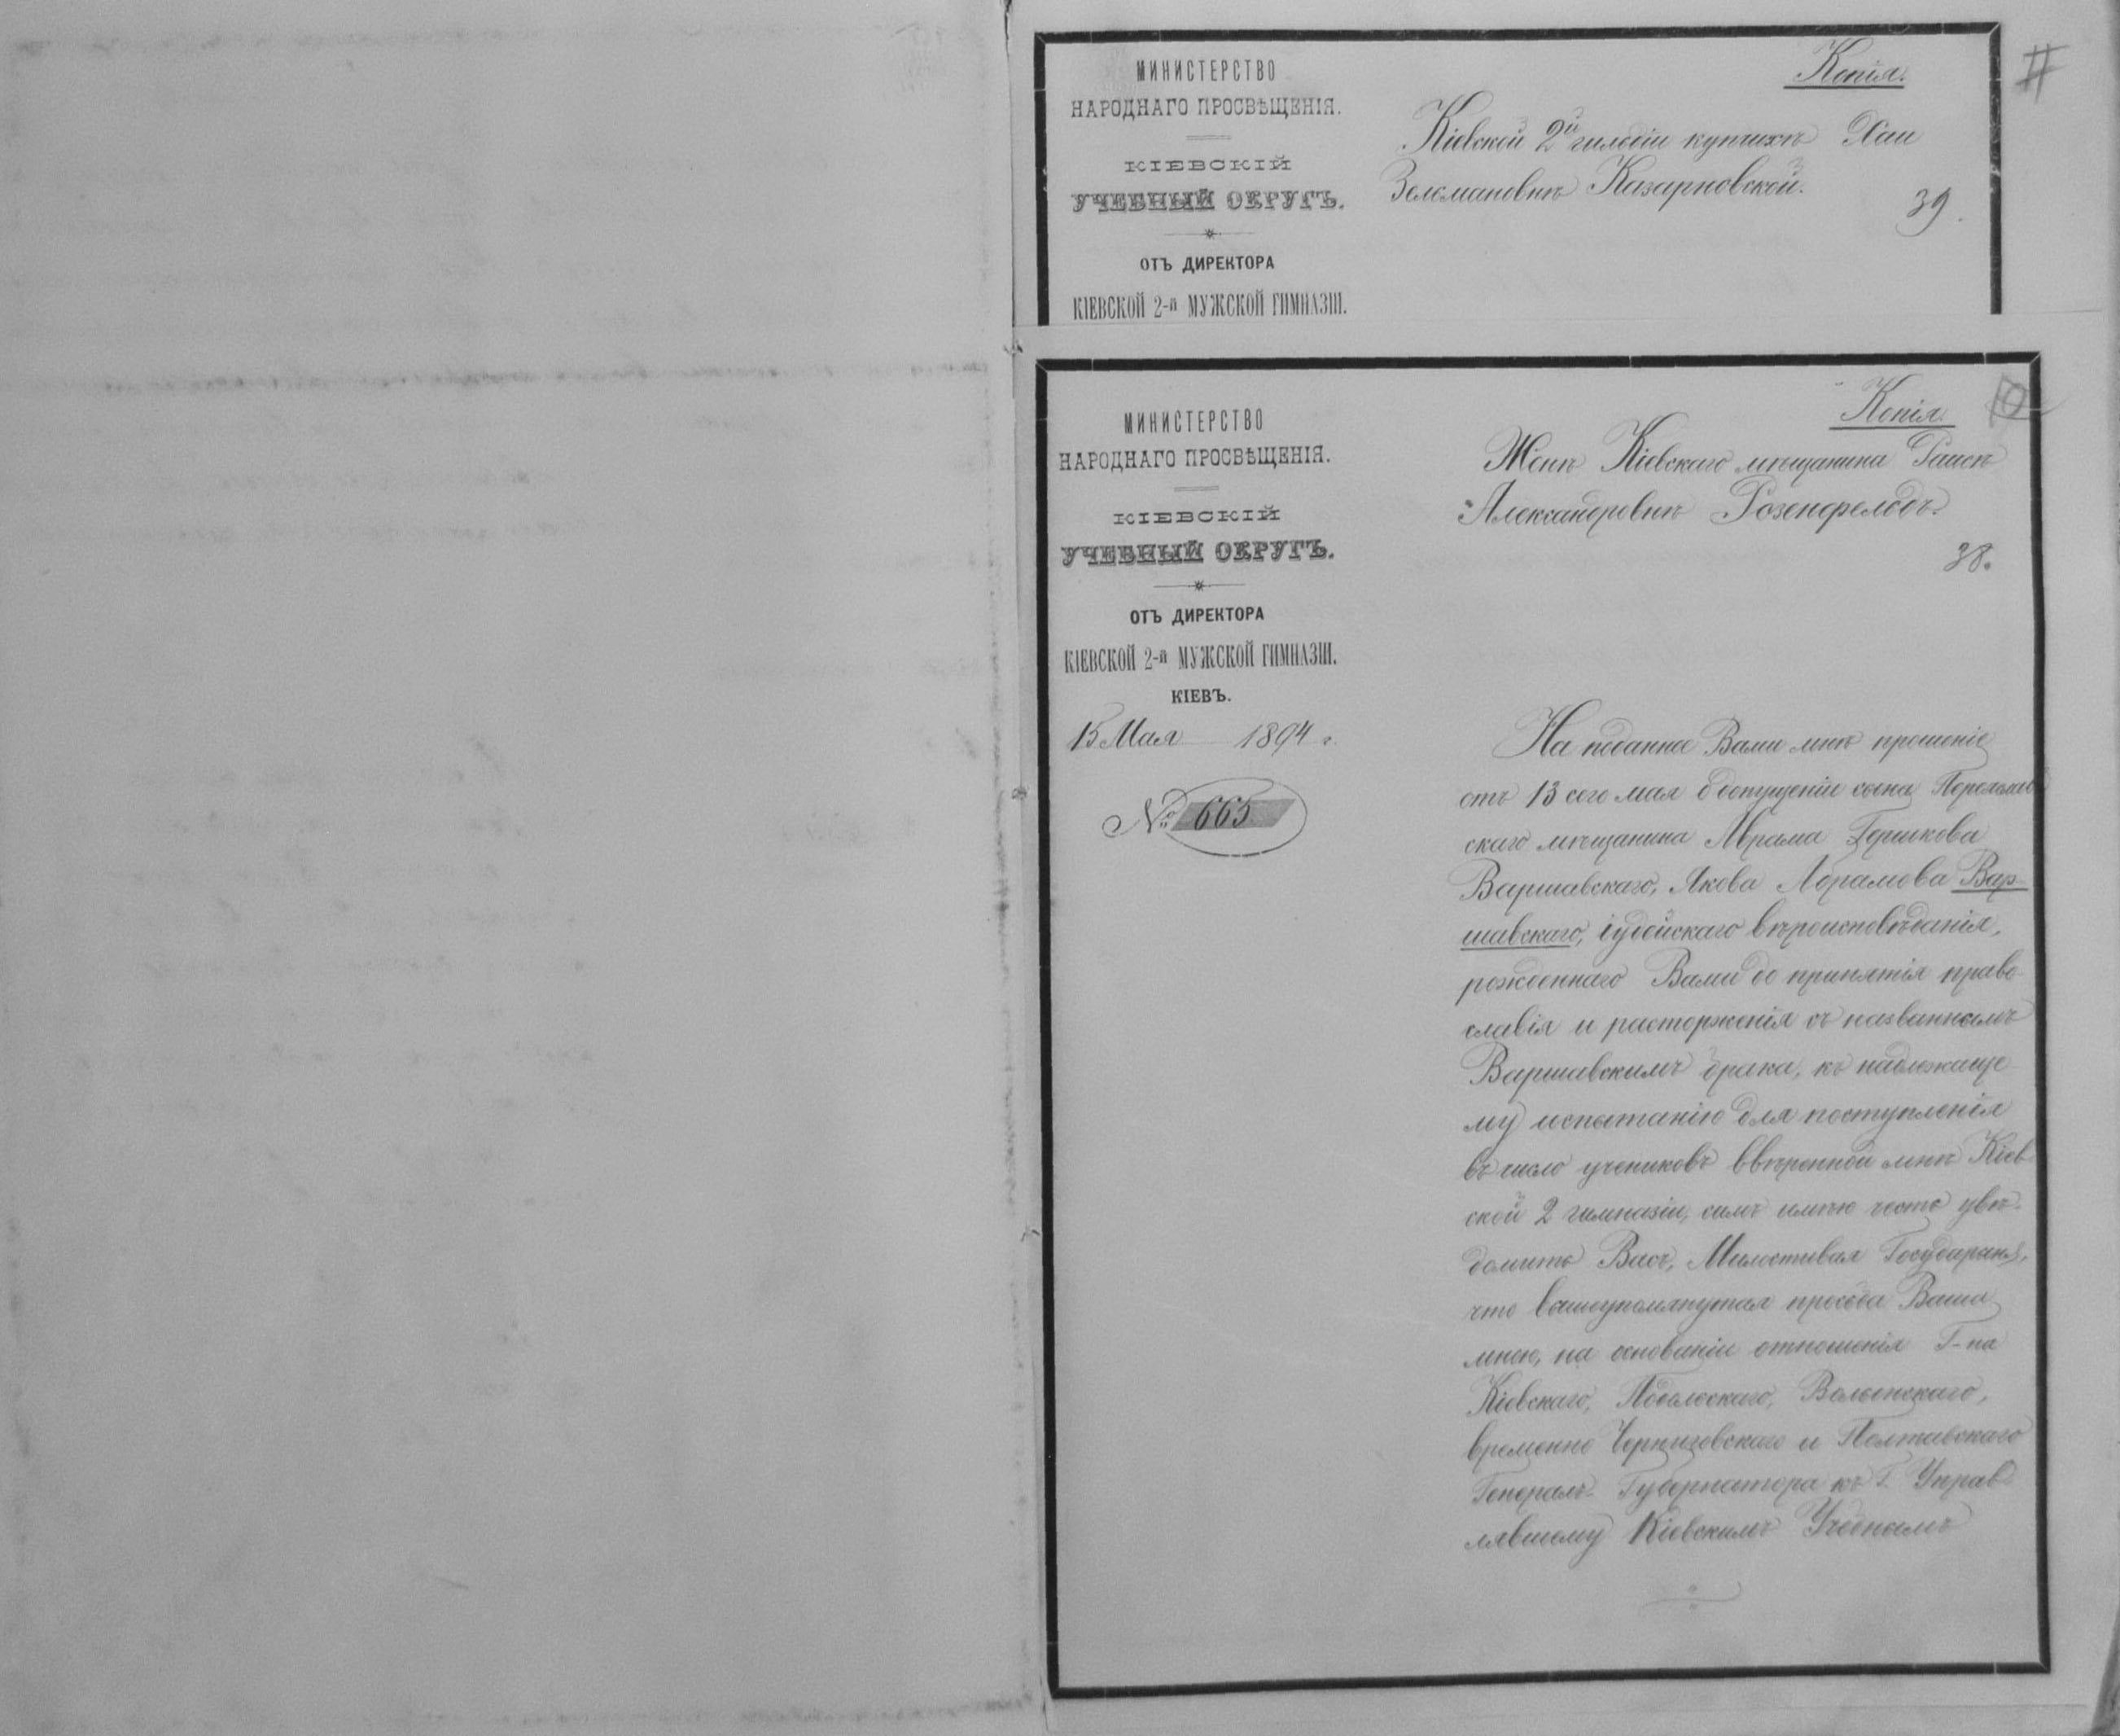 МИНИСТЕРСТВО
НАРОДНАГО ПРОСВѢЩЕНІЯ.
КІЕВСКІЙ
УЧЕБНЫЙ ОКРУГЪ.
ОТЪ ДИРЕКТОРА
КІЕВСКОЙ 2-й МУЖСКОЙ ГИМНАЗІИ.
Копія.
Кіевской 2й гильдіи купчихѣ Хаи
Зельмановнѣ Казарновской.
39.
МИНИСТЕРСТВО
НАРОДНАГО ПРОСВѢЩЕНІЯ.
КІЕВСКІЙ
УЧЕБНЫЙ ОКРУГЪ.
ОТЪ ДИРЕКТОРА
КІЕВСКОЙ 2-й МУЖСКОЙ ГИМНАЗІИ.
КІЕВЪ.
15 Мая 1894 г.
№ 665
Копія
10
Женѣ Кіевскаго мѣщанина Раисѣ
Александровнѣ Розенфельдъ.
38.
На поданное Вами мнѣ прошеніе
отъ 13 сего мая о допущеніи сына Переяслав
скаго мѣщанина Абрама Гершкова
Варшавскаго, Якова Абрамова Вар-
шавскаго, іудейскаго вѣроисповѣданія,
рожденнаго Вами до принятія право-
славія и расторженія съ названнымъ
Варшавскимъ брака, къ надлежаще-
му испытанію для поступленія
въ число учениковъ ввѣренной мнѣ Кіев-
ской 2 гимназіи, симъ имѣю честь увѣ-
домить Васъ, Милостивая Государыня,
что вышеупомянутая просьба Ваша
мною, на основаніи отношенія Г-на
Кіевскаго, Подольскаго, Волынскаго,
временно Черниговскаго и Полтавскаго
Генералъ-Губернатора къ Г. Управ-
лявшему Кіевскимъ Учебнымъ